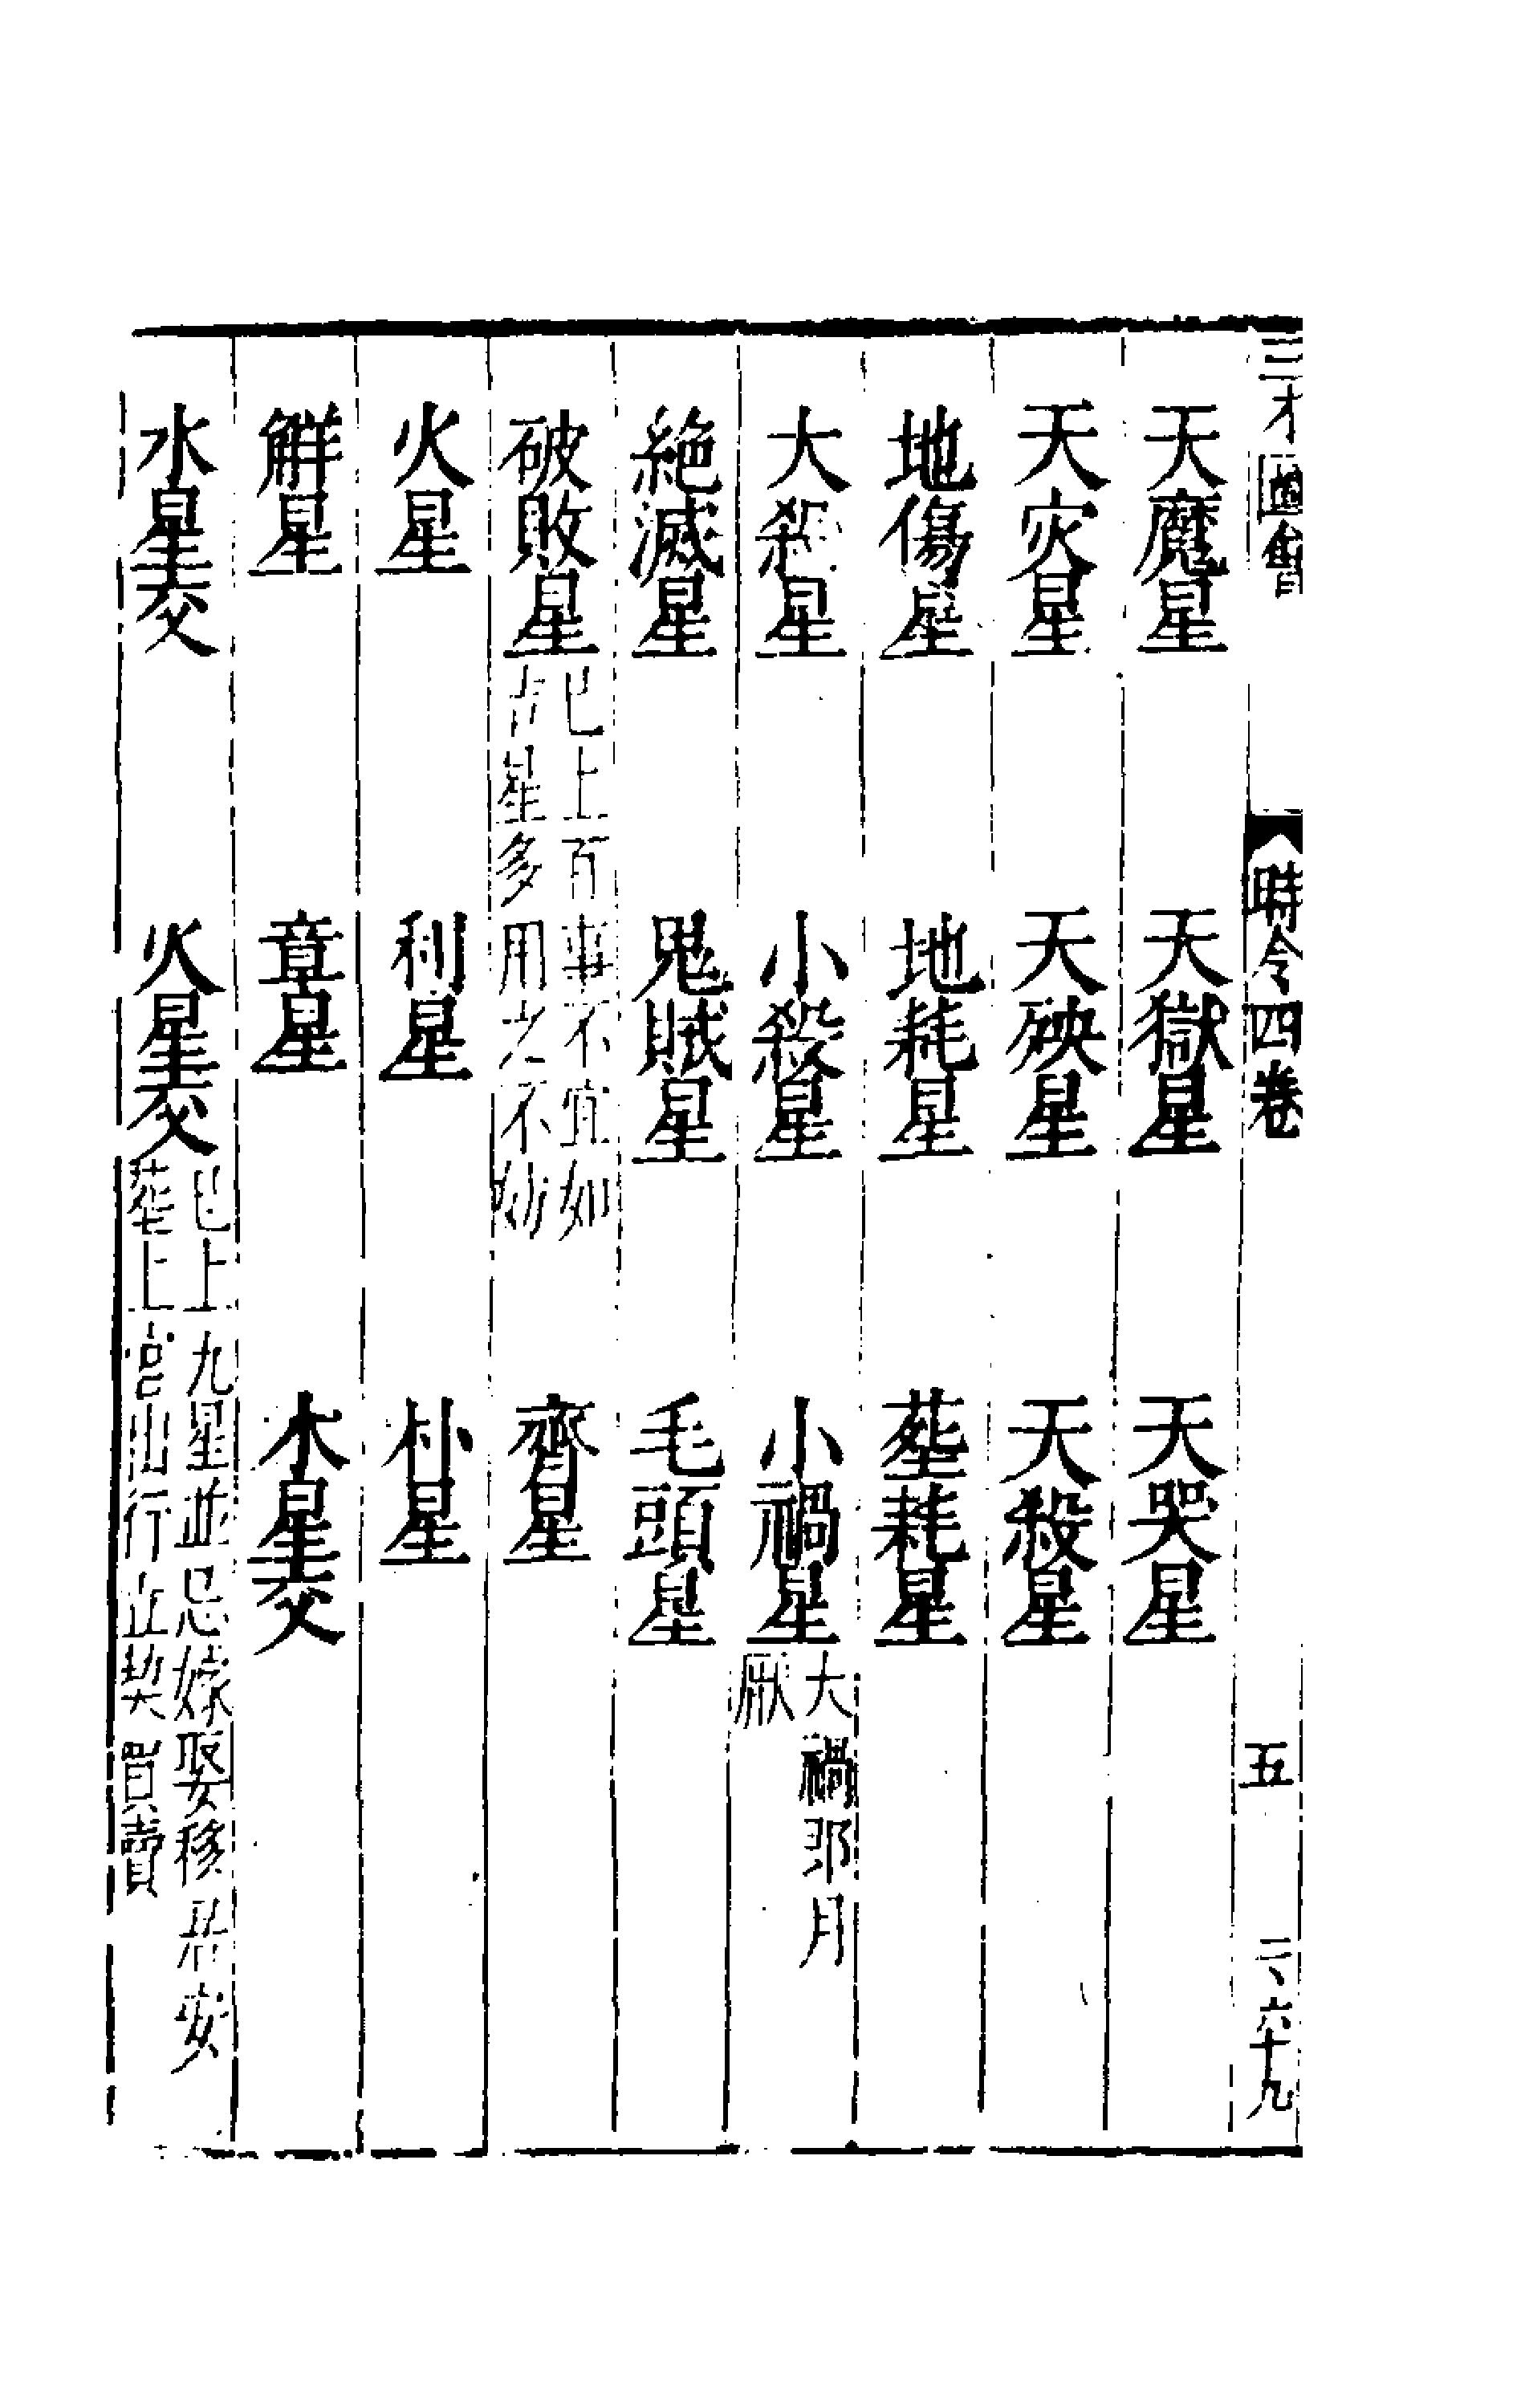 三才圖會
時令四卷
五
六十九
天魔星 天獄星 天哭星
天灾星 天殃星 天殺星
地傷星 地耗星 墓耗星
大殺星 小殺星 小禍星 大禍即月
厭
絶滅星 鬼賊星 毛頭星
破敗星 已上百事不宜如
吉星多用之不妨 齊星
火星 利星 朴星
觧星 章星 木星交
水星交 火星交 已上九星並忌嫁娶移居安
葬上官出行立契買賣